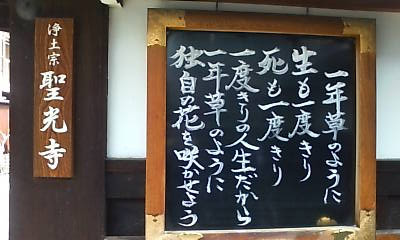 浄土宗
聖光寺
一年草のように
生も一度きり
死も一度きり
一度きりの人生だから
一年草のように
独自の花を咲かせよう